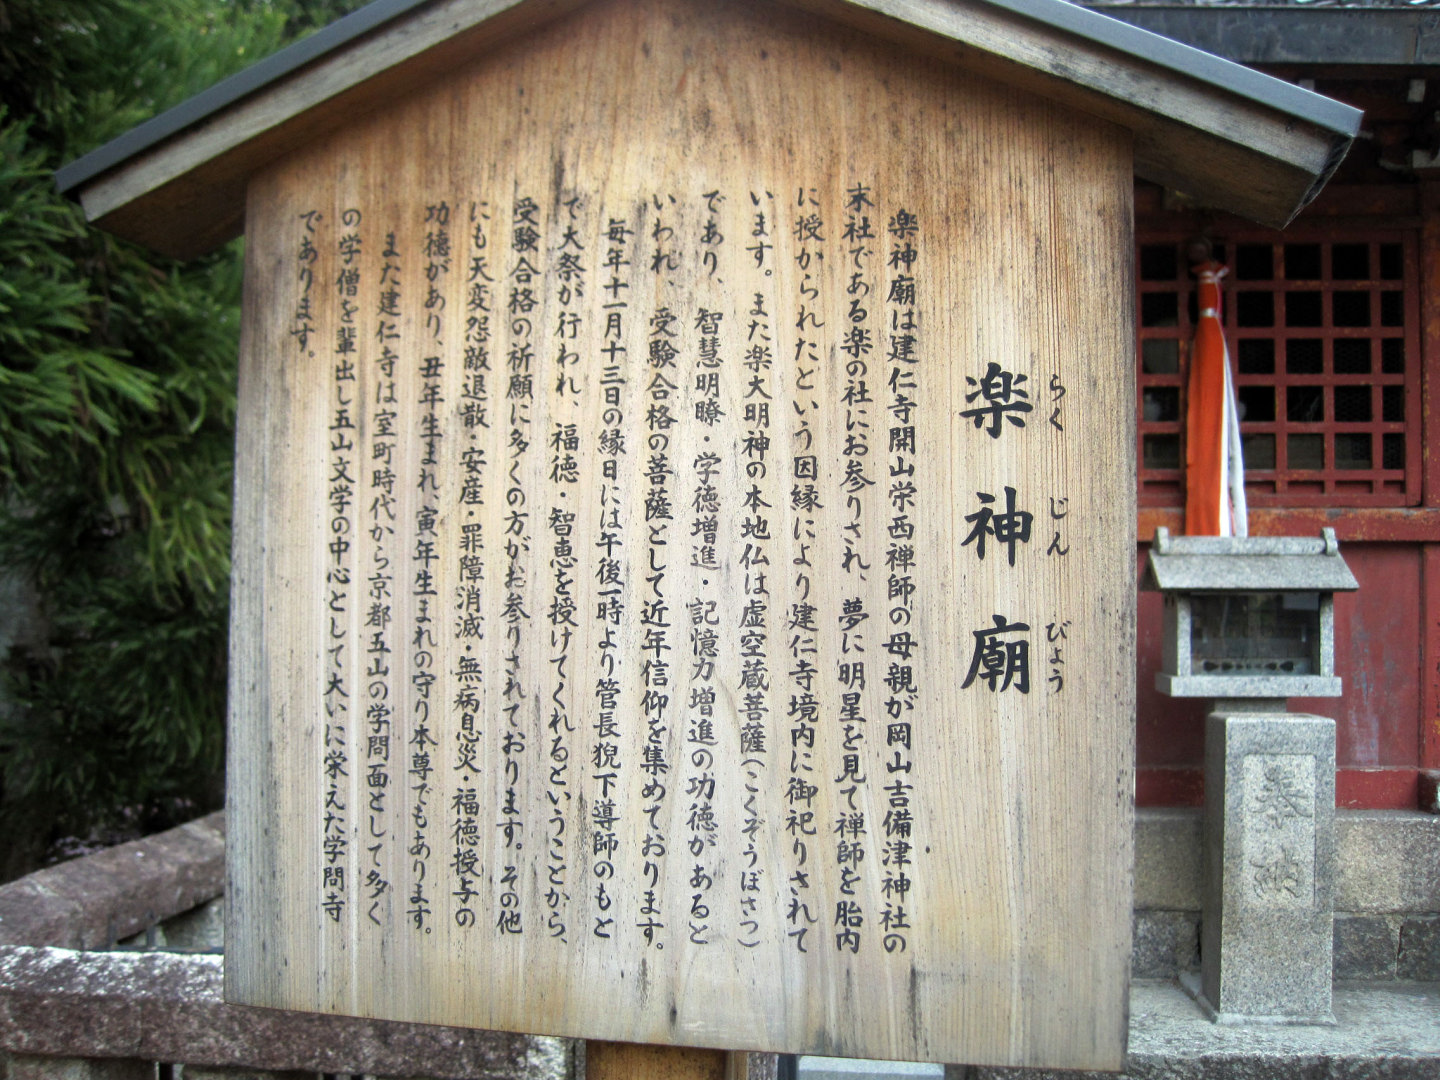 楽神廟
らくじんびょう
楽神廟は建仁寺開山栄西禅師の母親が岡山吉備津神社の
末社である楽の社にお参りされ、夢に明星を見て禅師を胎内
に授かられたという因縁により建仁寺境内に御祀りされて
います。また楽大明神の本地仏は虚空蔵菩薩(こくぞうぼさつ)
であり、智慧明瞭・学徳増進・記憶力増進の功徳があると
いわれ、受験合格の菩薩として近年信仰を集めております。
毎年十一月十三日の縁日には午後一時より管長猊下導師のもと
で大祭が行われ、福徳・智恵を授けてくれるということから、
受験合格の祈願に多くの方がお参りされております。その他
にも天変怨敵退散・安産・罪障消滅・無病息災・福徳授与の
功徳があり、丑年生まれ、寅年生まれの守り本尊でもあります。
また建仁寺は室町時代から京都五山の学問面として多く
の学僧を輩出し五山文学の中心として大いに栄えた学問寺
であります。
奉納